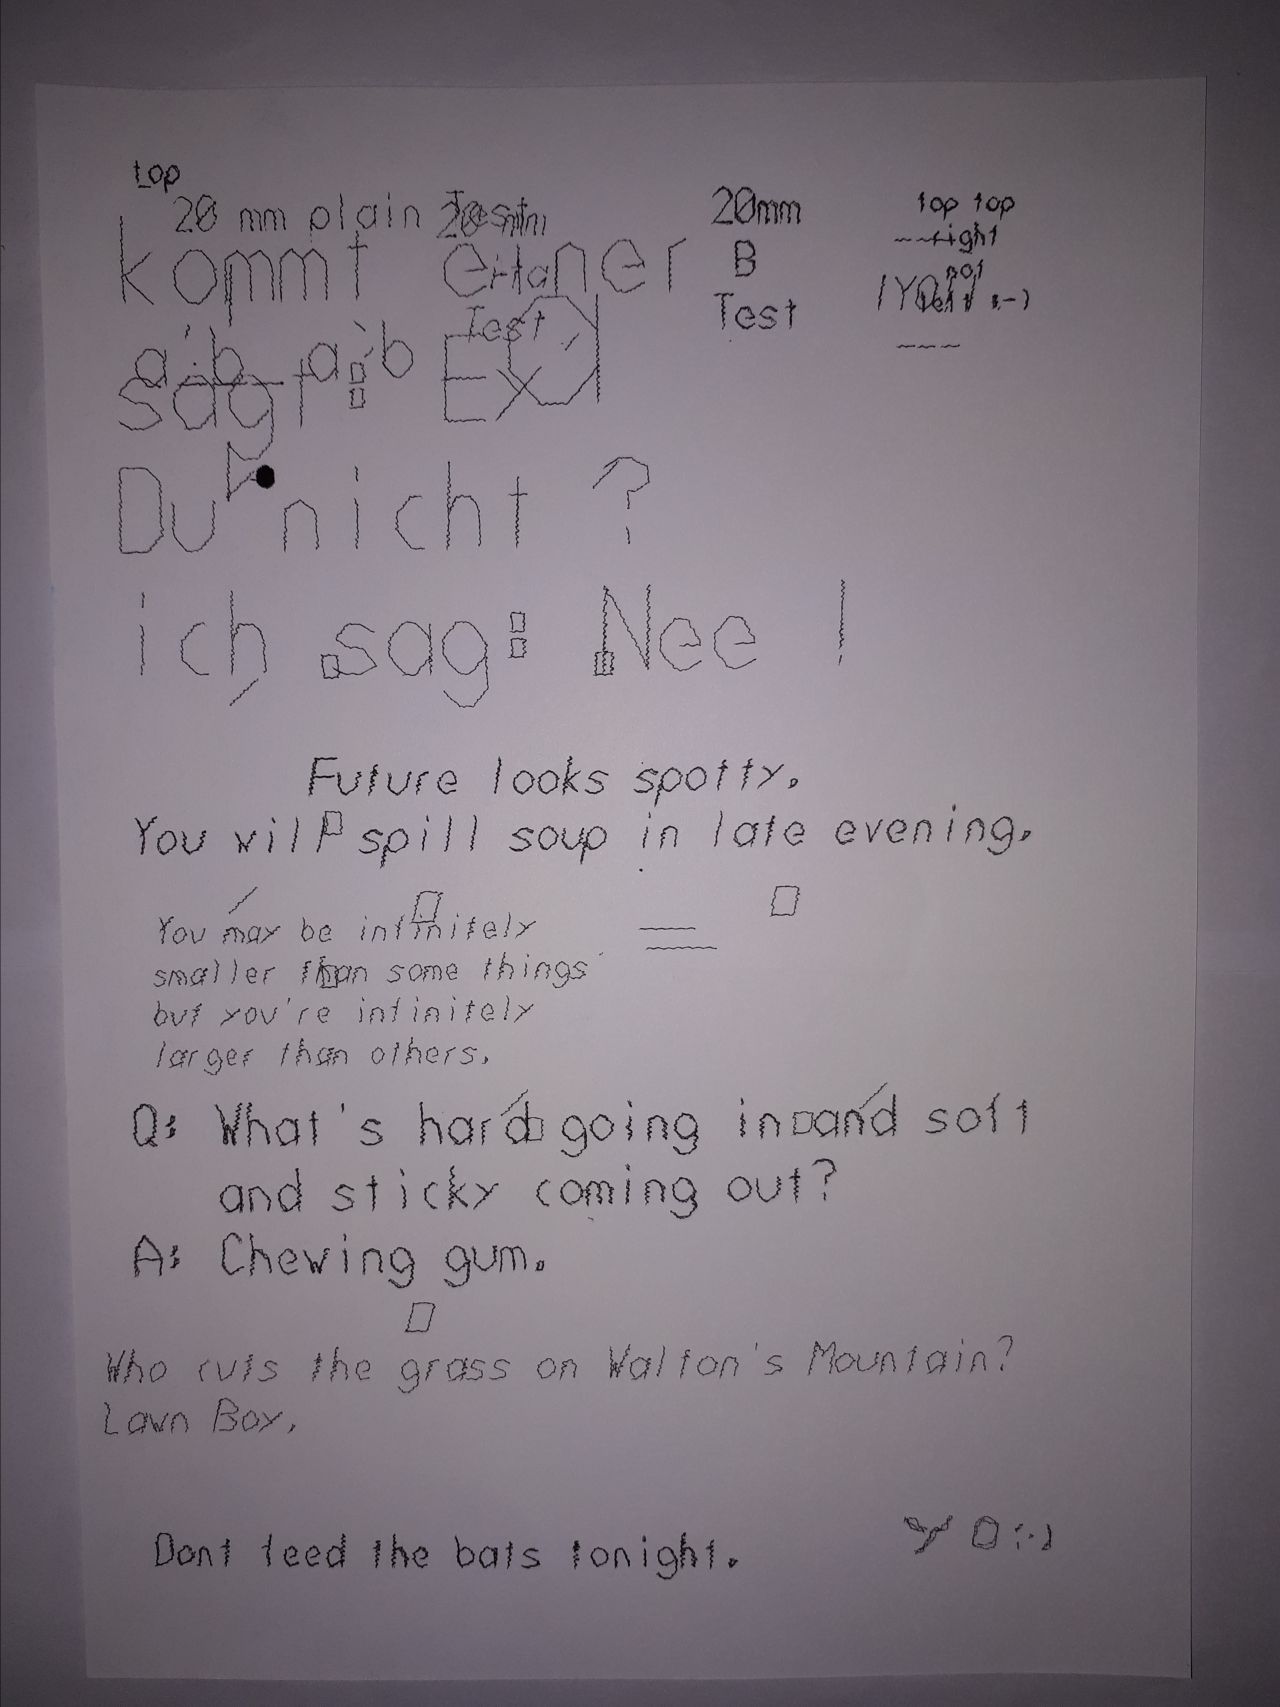 top
20 mm plain Test
20mm
B
Test
top top
right
kommt einer
Test
a b a b
sagt: Ex
Du nicht ?
ich sag: Nee !
Future looks spotty.
You wil spill soup in late evening.
You may be infinitely
smaller than some things
but you're infinitely
larger than others.
Q: What's hard going in and soft
and sticky coming out?
A: Chewing gum.
Who cuts the grass on Walton's Mountain?
Lawn Boy.
Dont feed the bats tonight.
Y O :-)